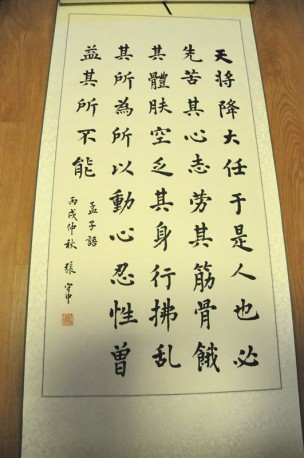 天将降大任于是人也必
先苦其心志劳其筋骨餓
其體肤空乏其身行拂乱
其所為所以動心忍性曾
益其所不能
孟子語
丙戌仲秋 張